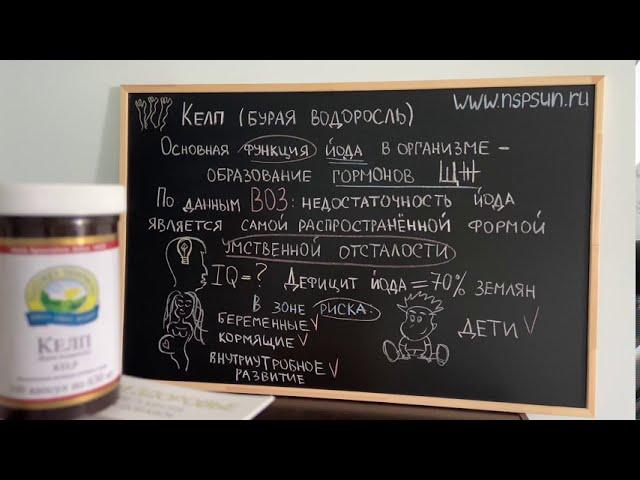 www.nspsun.ru
Келп (бурая водоросль)
Основная функция йода в организме –
образование гормонов ЩЖ
По данным ВОЗ: недостаточность йода
является самой распространённой формой
умственной отсталости
IQ = ? Дефицит йода = 70% землян
В зоне риска:
беременные
кормящие
внутриутробное
развитие
дети
Келп
KELP